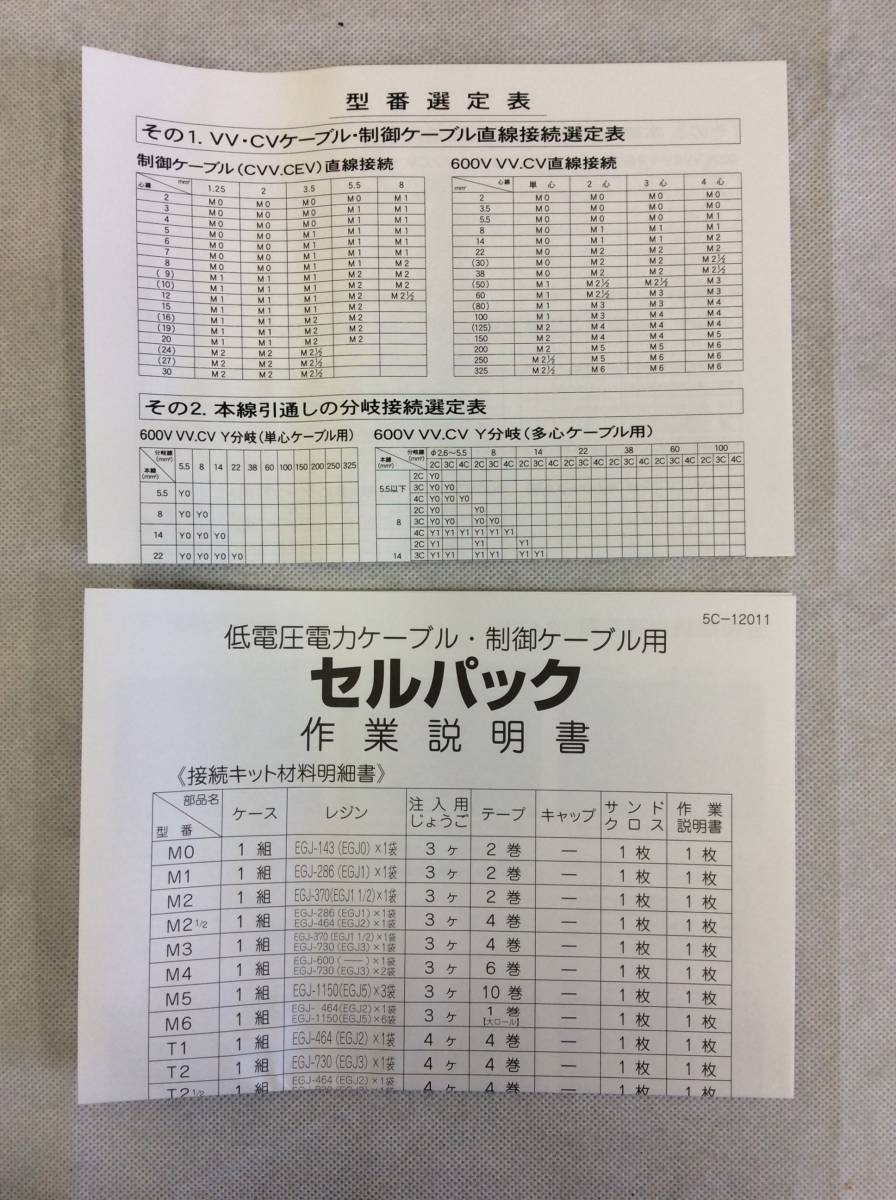 型番選定表
その1. VV・CVケーブル・制御ケーブル直線接続選定表
制御ケーブル(CVV.CEV)直線接続
心線 mm² 1.25 2 3.5 5.5 8
2 M0 M0 M0 M0 M1
3 M0 M0 M0 M1 M1
4 M0 M0 M0 M1 M1
5 M0 M0 M1 M1 M1
6 M0 M0 M1 M1 M1
7 M0 M0 M1 M1 M1
8 M0 M0 M1 M1 M2
(9) M1 M1 M1 M2 M2
(10) M1 M1 M1 M2 M2
12 M1 M1 M1 M2 M2½
15 M1 M1 M1 M2
(16) M1 M1 M1 M2
(19) M1 M1 M2 M2
20 M1 M1 M2 M2
(24) M2 M2 M2½
(27) M2 M2 M2½
30 M2 M2 M2½
600V VV.CV直線接続
mm² 心線 単心 2心 3心 4心
2 M0 M0 M0 M0
3.5 M0 M0 M0 M0
5.5 M0 M0 M0 M1
8 M0 M1 M1 M1
14 M0 M1 M1 M2
22 M0 M2 M2 M2
(30) M0 M2 M2 M2½
38 M0 M2 M2 M2½
(50) M1 M2½ M2½ M3
60 M1 M2½ M3 M3
(80) M1 M3 M3 M4
100 M1 M3 M4 M4
(125) M2 M4 M4 M4
150 M2 M4 M4 M5
200 M2 M5 M5 M6
250 M2½ M5 M6 M6
325 M2½ M6 M6 M6
その2. 本線引通しの分岐接続選定表
600V VV.CV Y分岐(単心ケーブル用)
分岐線(mm²) 本線(mm²) 5.5 8 14 22 38 60 100 150 200 250 325
5.5 Y0
8 Y0 Y0
14 Y0 Y0 Y0
22 Y0 Y0 Y0 Y0
600V VV.CV Y分岐(多心ケーブル用)
分岐線(mm²) 本線(mm²) φ2.6〜5.5 8 14 22 38 60 100
2C 3C 4C 2C 3C 4C 2C 3C 4C 2C 3C 4C 2C 3C 4C 2C 3C 4C 2C 3C 4C
5.5以下 2C Y0
3C Y0 Y0
4C Y0 Y0 Y0
8 2C Y0 Y0
3C Y0 Y0 Y0 Y0
4C Y1 Y1 Y1 Y1 Y1 Y1
14 2C Y1 Y1 Y1
3C Y1 Y1 Y1 Y1 Y1 Y1
5C-12011
低電圧電力ケーブル・制御ケーブル用
セルパック
作業説明書
《接続キット材料明細書》
部品名 型番 ケース レジン 注入用じょうご テープ キャップ サンドクロス 作業説明書
M0 1組 EGJ-143(EGJ0)×1袋 3ヶ 2巻 — 1枚 1枚
M1 1組 EGJ-286(EGJ1)×1袋 3ヶ 2巻 — 1枚 1枚
M2 1組 EGJ-370(EGJ1 1/2)×1袋 3ヶ 2巻 — 1枚 1枚
M2 1/2 1組 EGJ-286(EGJ1)×1袋 EGJ-464(EGJ2)×1袋 3ヶ 4巻 — 1枚 1枚
M3 1組 EGJ-370(EGJ1 1/2)×1袋 EGJ-730(EGJ3)×1袋 3ヶ 4巻 — 1枚 1枚
M4 1組 EGJ-600(——)×1袋 EGJ-730(EGJ3)×2袋 3ヶ 6巻 — 1枚 1枚
M5 1組 EGJ-1150(EGJ5)×3袋 3ヶ 10巻 — 1枚 1枚
M6 1組 EGJ-464(EGJ2)×1袋 EGJ-1150(EGJ5)×6袋 3ヶ 1巻【大ロール】 — 1枚 1枚
T1 1組 EGJ-464(EGJ2)×1袋 4ヶ 4巻 — 1枚 1枚
T2 1組 EGJ-730(EGJ3)×1袋 4ヶ 4巻 — 1枚 1枚
T2 1/2 1組 EGJ-464(EGJ2)×1袋 4ヶ 4巻 — 1枚 1枚